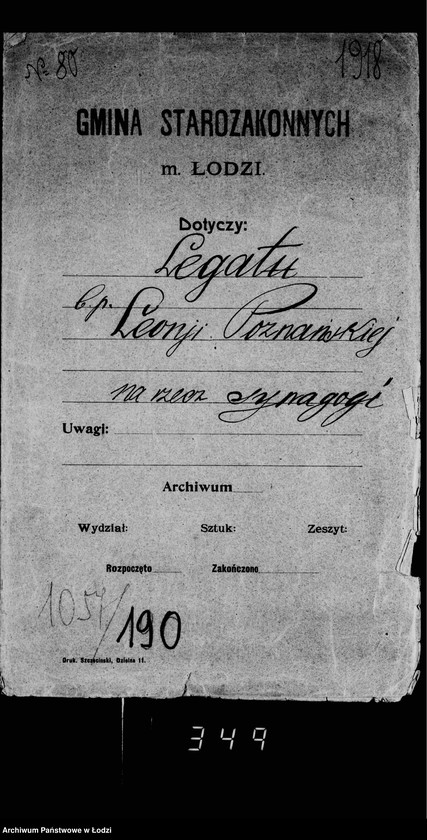 № 80 1918
GMINA STAROZAKONNYCH
m. ŁODZI.
Dotyczy:
Legatu
b.p. Leonji Poznańskiej
na rzecz synagogi
Uwagi:
Archiwum
Wydział: Sztuk: Zeszyt:
Rozpoczęto Zakończono
1057/190
Druk. Szczeciński, Dzielna 11.
349
Archiwum Państwowe w Łodzi